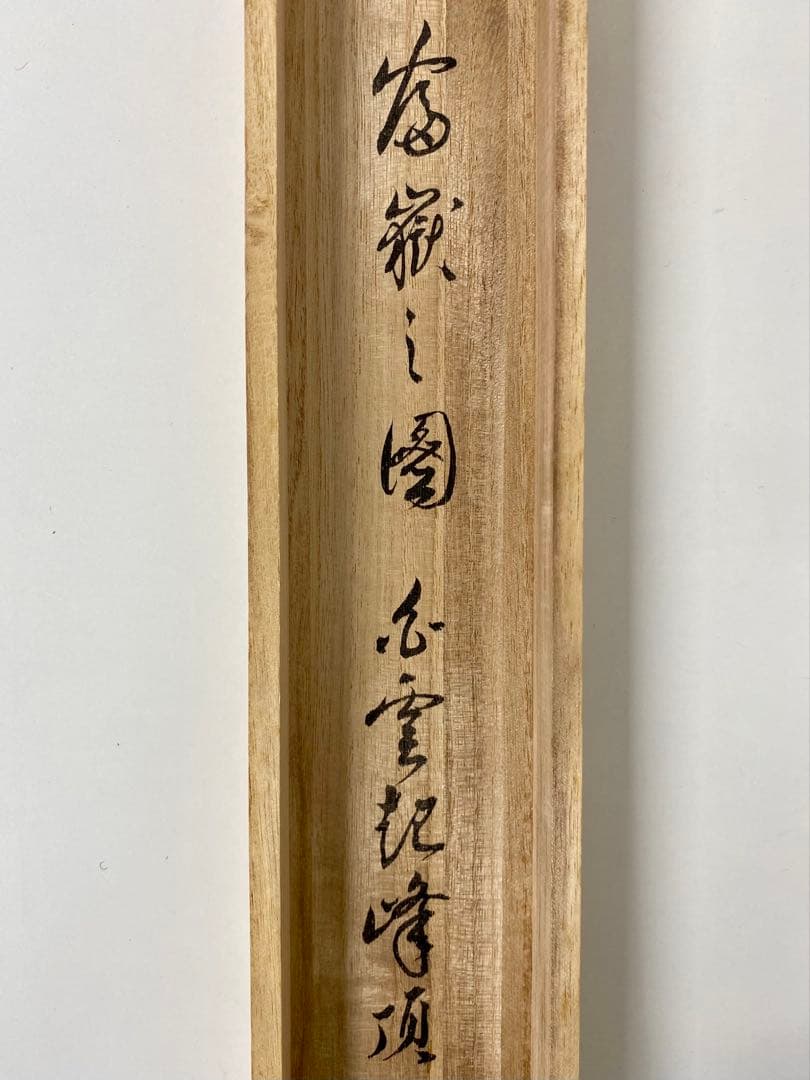 富嶽之圖 白雲起峰頂